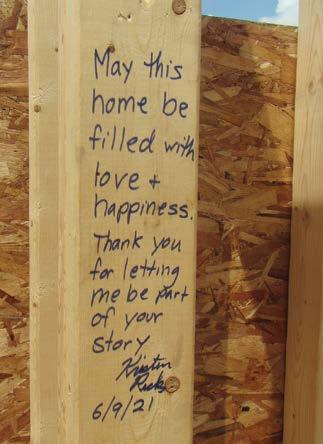 May this
home be
filled with
love +
happiness.
Thank you
for letting
me be part
of your
story
Kristin
Ricks
6/9/21